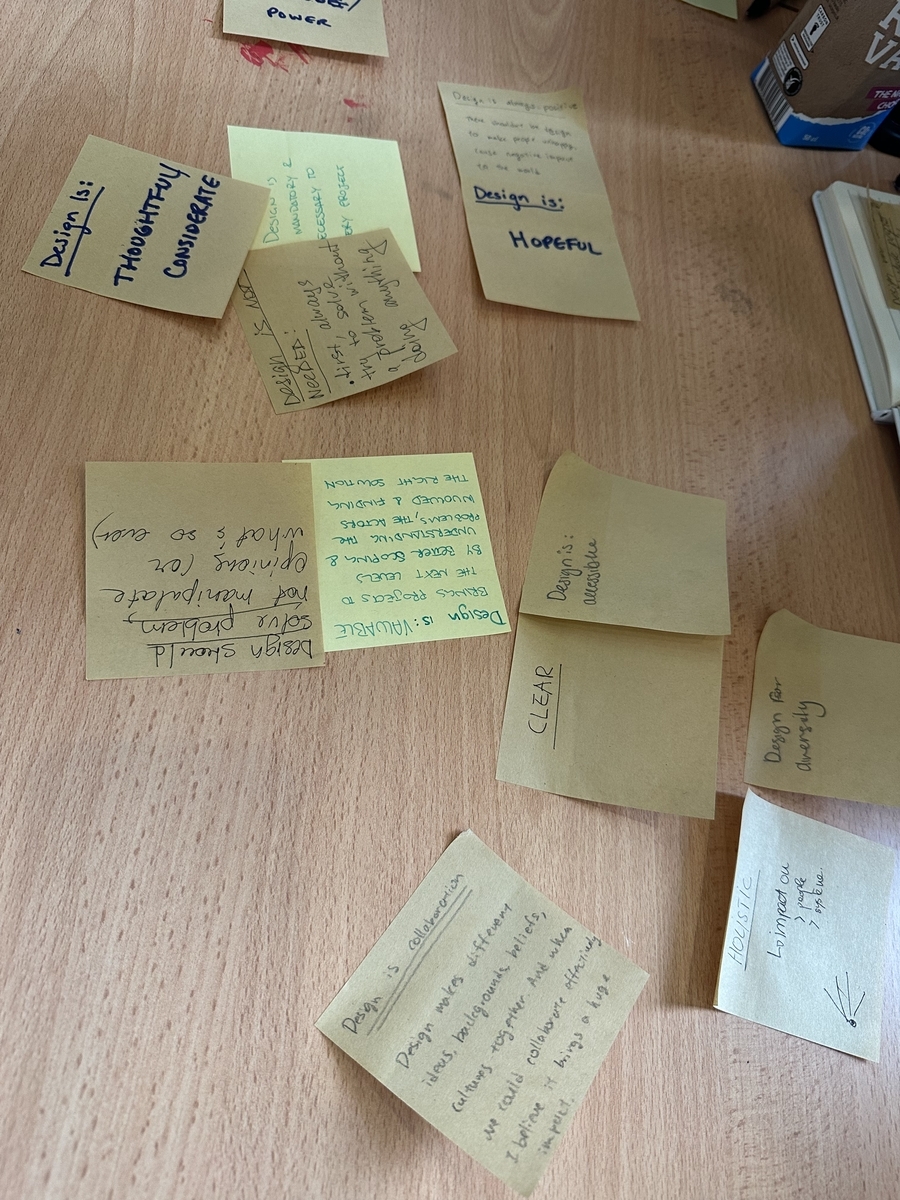 POWER
Design is:
THOUGHTFUL/
CONSIDERATE
DESIGN IS
MANDATORY &
NECESSARY TO
PROJECT
Design is always positive
there shouldn't be design
to make people unhappy,
cause negative impact
to the world
Design is:
HOPEFUL
DESIGN IS NOT
NEEDED:
• first, always
try to solve
a problem without
doing anything
Design should
solve problem,
not manipulate
opinions (or
what's so ever)
Design is: VALUABLE
BRINGS PROJECTS TO
THE NEXT LEVELS
BY BETTER SCOPING &
UNDERSTANDING THE
PROBLEMS, THE ACTORS
INVOLVED & FINDING
THE RIGHT SOLUTION
Design is:
accessible
CLEAR
Design for
diversity
HOLISTIC
↳ impact on
> people
> systems.
Design is collaboration
Design makes different
ideas, backgrounds, beliefs,
cultures together. And when
we could collaborate effectively
I believe it brings a huge
impact.